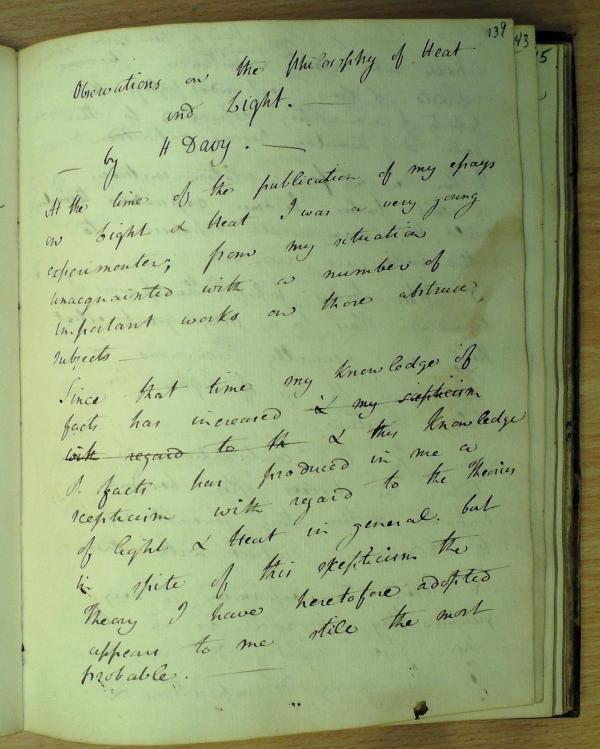 139
43
5
Observations on the Philosophy of Heat
and Light. —
— by H Davy. —
At the time of the publication of my essays
on Light & Heat I was a very young
experimenter; from my situation
unacquainted with a number of
important works on those abstruse
subjects —
Since that time my knowledge of
facts has increased & my scepticism
with regard to th & this knowledge
of facts has produced in me a
scepticism with regard to the Theories
of light & Heat in general. but
in spite of this skepticism the
Theory I have heretofore adopted
appears to me stile the most
probable. —